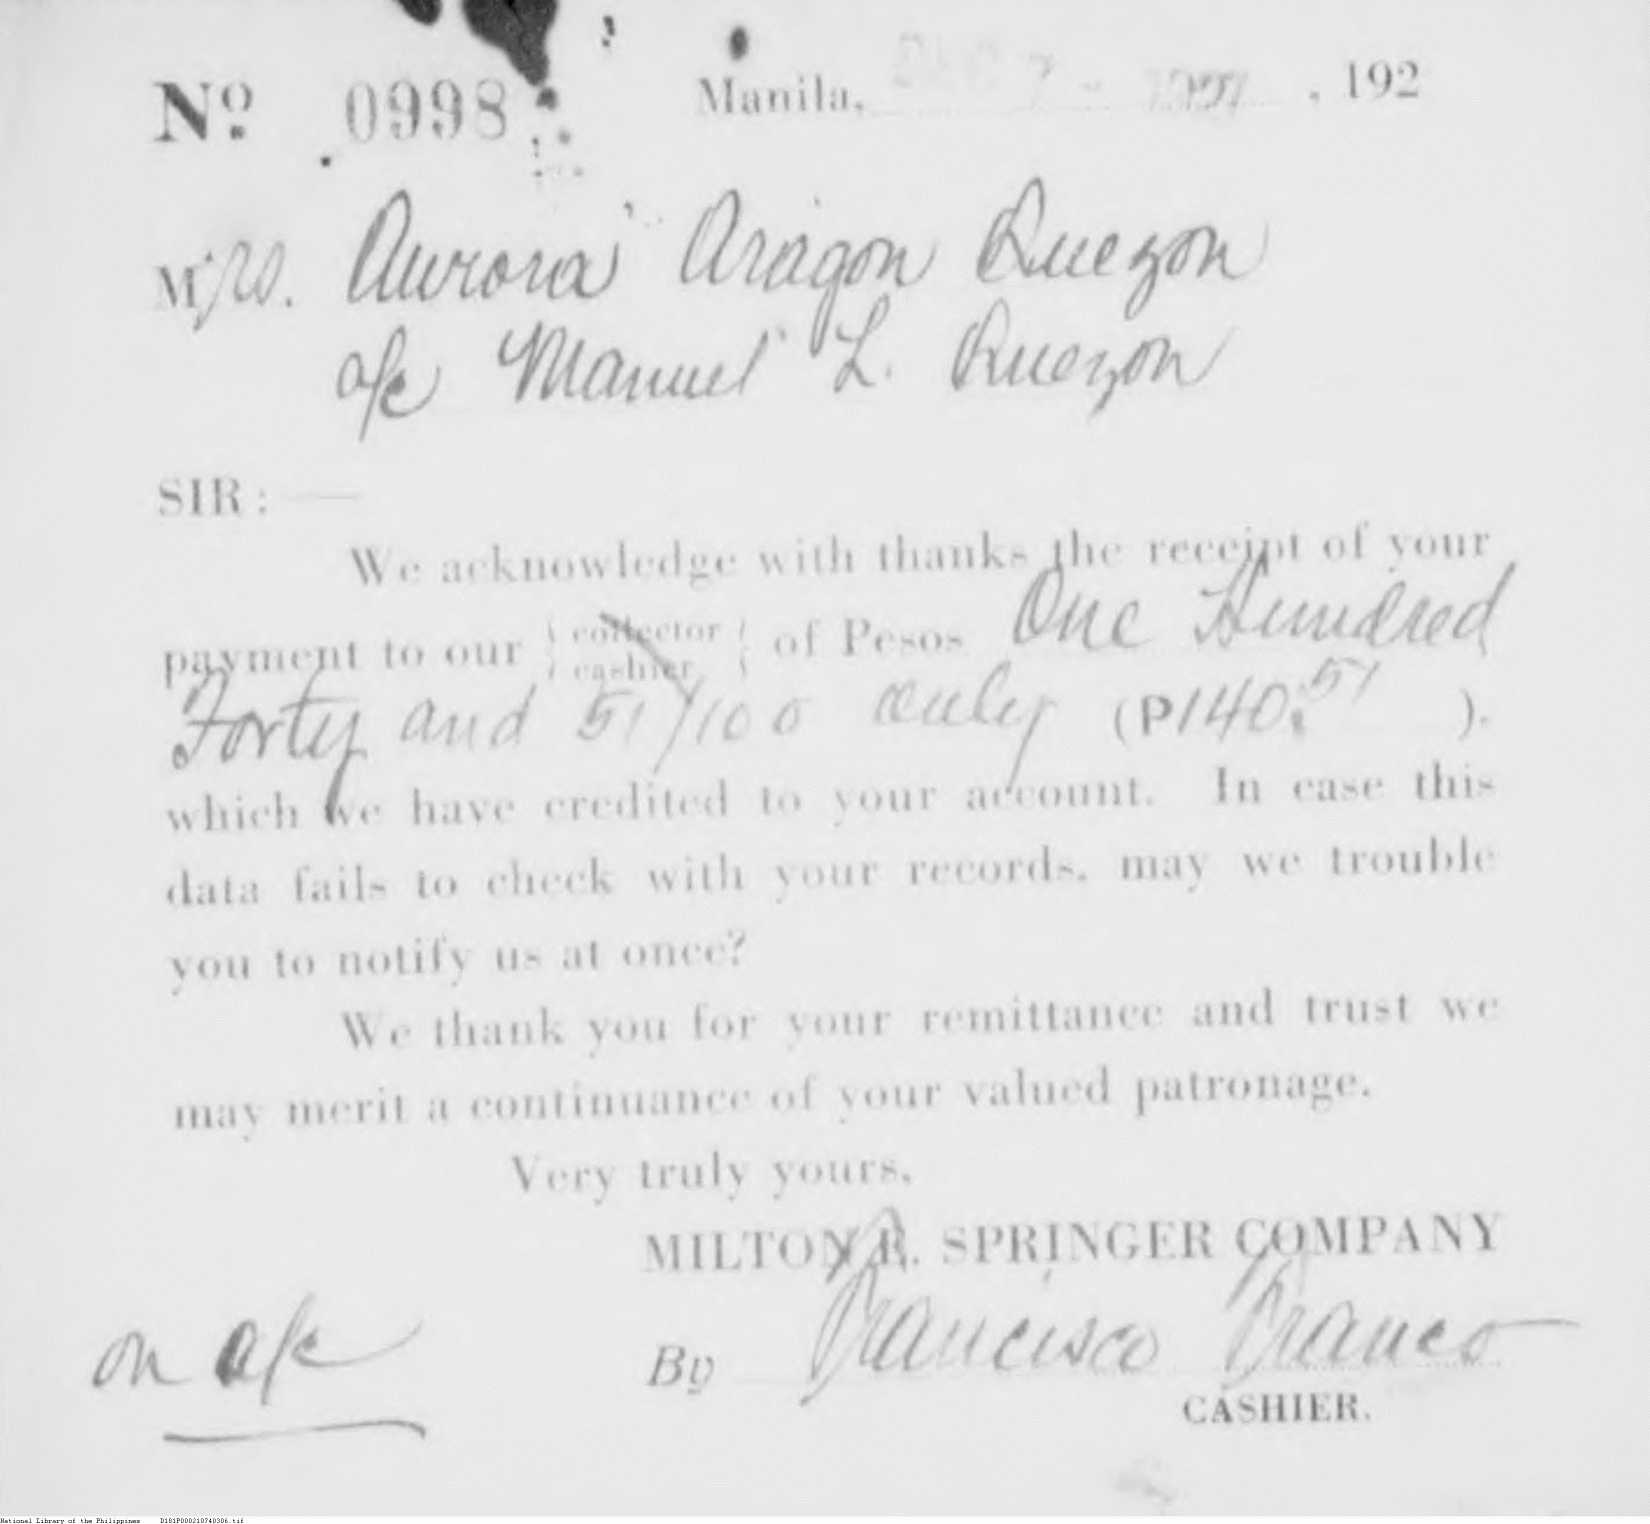 Nº 0998 Manila, DEC 7 - 192 , 192
Mrs. Aurora Aragon Quezon
a/c Manuel L. Quezon
SIR:
We acknowledge with thanks the receipt of your
payment to our { collector } of Pesos One Hundred
{ cashier }
Forty and 51/100 only (P140.51 ).
which we have credited to your account. In case this
data fails to check with your records, may we trouble
you to notify us at once?
We thank you for your remittance and trust we
may merit a continuance of your valued patronage.
Very truly yours,
MILTON E. SPRINGER COMPANY
on a/c By Francisco Franco
CASHIER.
National Library of the Philippines D181P000210740306.tif